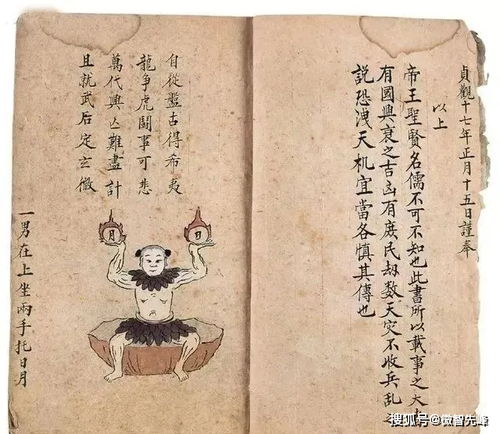 貞觀十七年正月十五日謹奉
以上
帝王聖賢名儒不可不知也此書所以載事之大
有國興衰之吉凶有庶民劫數天灾不收兵乱
説恐洩天机宜當各慎其傳也
自從盤古得希夷
龍爭虎鬪事可悲
萬代興亡難盡計
且就武后定玄微
日
月
一男在上坐兩手托日月
搜狐号@微智先峰